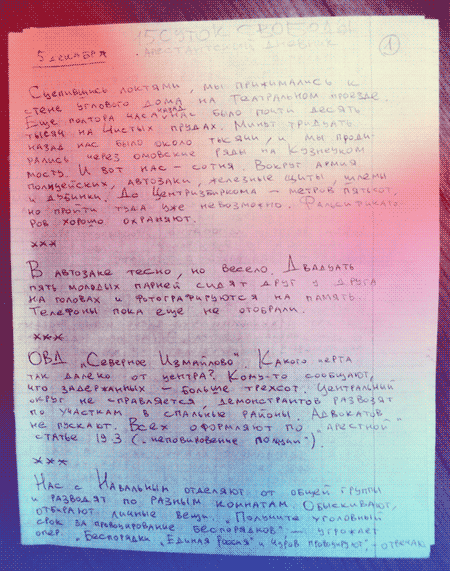 15 СУТОК СВОБОДЫ
арестантский дневник
1
5 декабря
Сцепившись локтями, мы прижимались к
стене углового дома на Театральном проезде.
Еще полтора часа назад нас было почти десять
тысяч на Чистых прудах. Минут тридцать
назад нас было около тысячи, и мы проди-
рались через омоновские ряды на Кузнецком
мосту. И вот нас – сотня. Вокруг армия
полицейских, автозаки, железные щиты, шлемы
и дубинки. До Центризбиркома – метров пятьсот,
но пройти туда уже невозможно. Фальсификато-
ров хорошо охраняют.
***
В автозаке тесно, но весело. Двадцать
пять молодых парней сидят друг у друга
на головах и фотографируются на память.
Телефоны пока еще не отобрали.
***
ОВД „Северное Измайлово". Какого черта
так далеко от центра? Кому-то сообщают,
что задержанных – больше трехсот. Центральный
округ не справляется, демонстрантов развозят
по участкам в спальные районы. Адвокатов
не пускают. Всех оформляют по "арестной"
статье 19.3 („неповиновение полиции").
***
Нас с Навальным отделяют от общей группы
и разводят по разным комнатам. Обыскивают,
отбирают личные вещи. „Получите уголовный
срок за провоцирование беспорядков" – угрожает
опер. „Беспорядки „Единая Россия" и Чуров провоцируют" – отвечаю.